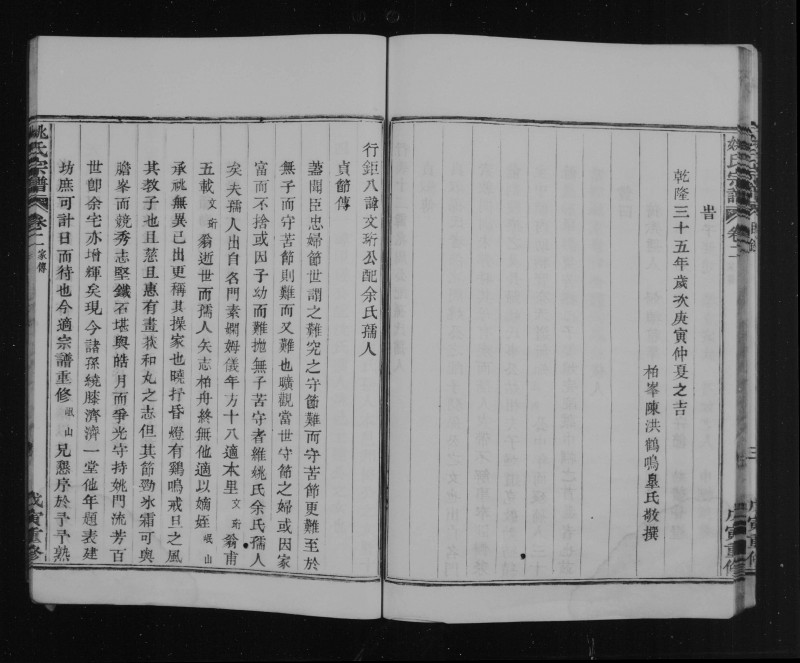 姚氏宗譜
卷二
戊寅重修
旹
乾隆三十五年歲次庚寅仲夏之吉
柏峯陳洪鶴鳴臯氏敬撰
行鉅八諱文珩公配余氏孺人
貞節傳
蓋聞臣忠婦節世謂之難究之守節難而守苦節更難至於
無子而守苦節則難而又難也曠觀當世守節之婦或因家
富而不捨或因子幼而難拋無子苦守者維姚氏余氏孺人
矣夫孺人出自名門素嫻姆儀年方十八適本里文珩翁甫
五載文珩翁逝世而孺人矢志柏舟終無他適以嫡姪岷山
承祧無異已出更稱其操家也曉抒昏燈有鷄鳴戒旦之風
其教子也且慈且惠有畫荻和丸之志但其節勁氷霜可與
膽峯而競秀志堅鐵石堪與皓月而爭光守持姚門流芳百
世卽余宅亦增輝矣現今諸孫繞膝濟濟一堂他年題表建
坊庶可計日而待也今適宗譜重修岷山兄懇序於予予熟
姚氏宗譜
卷二
家傳
戊寅重修